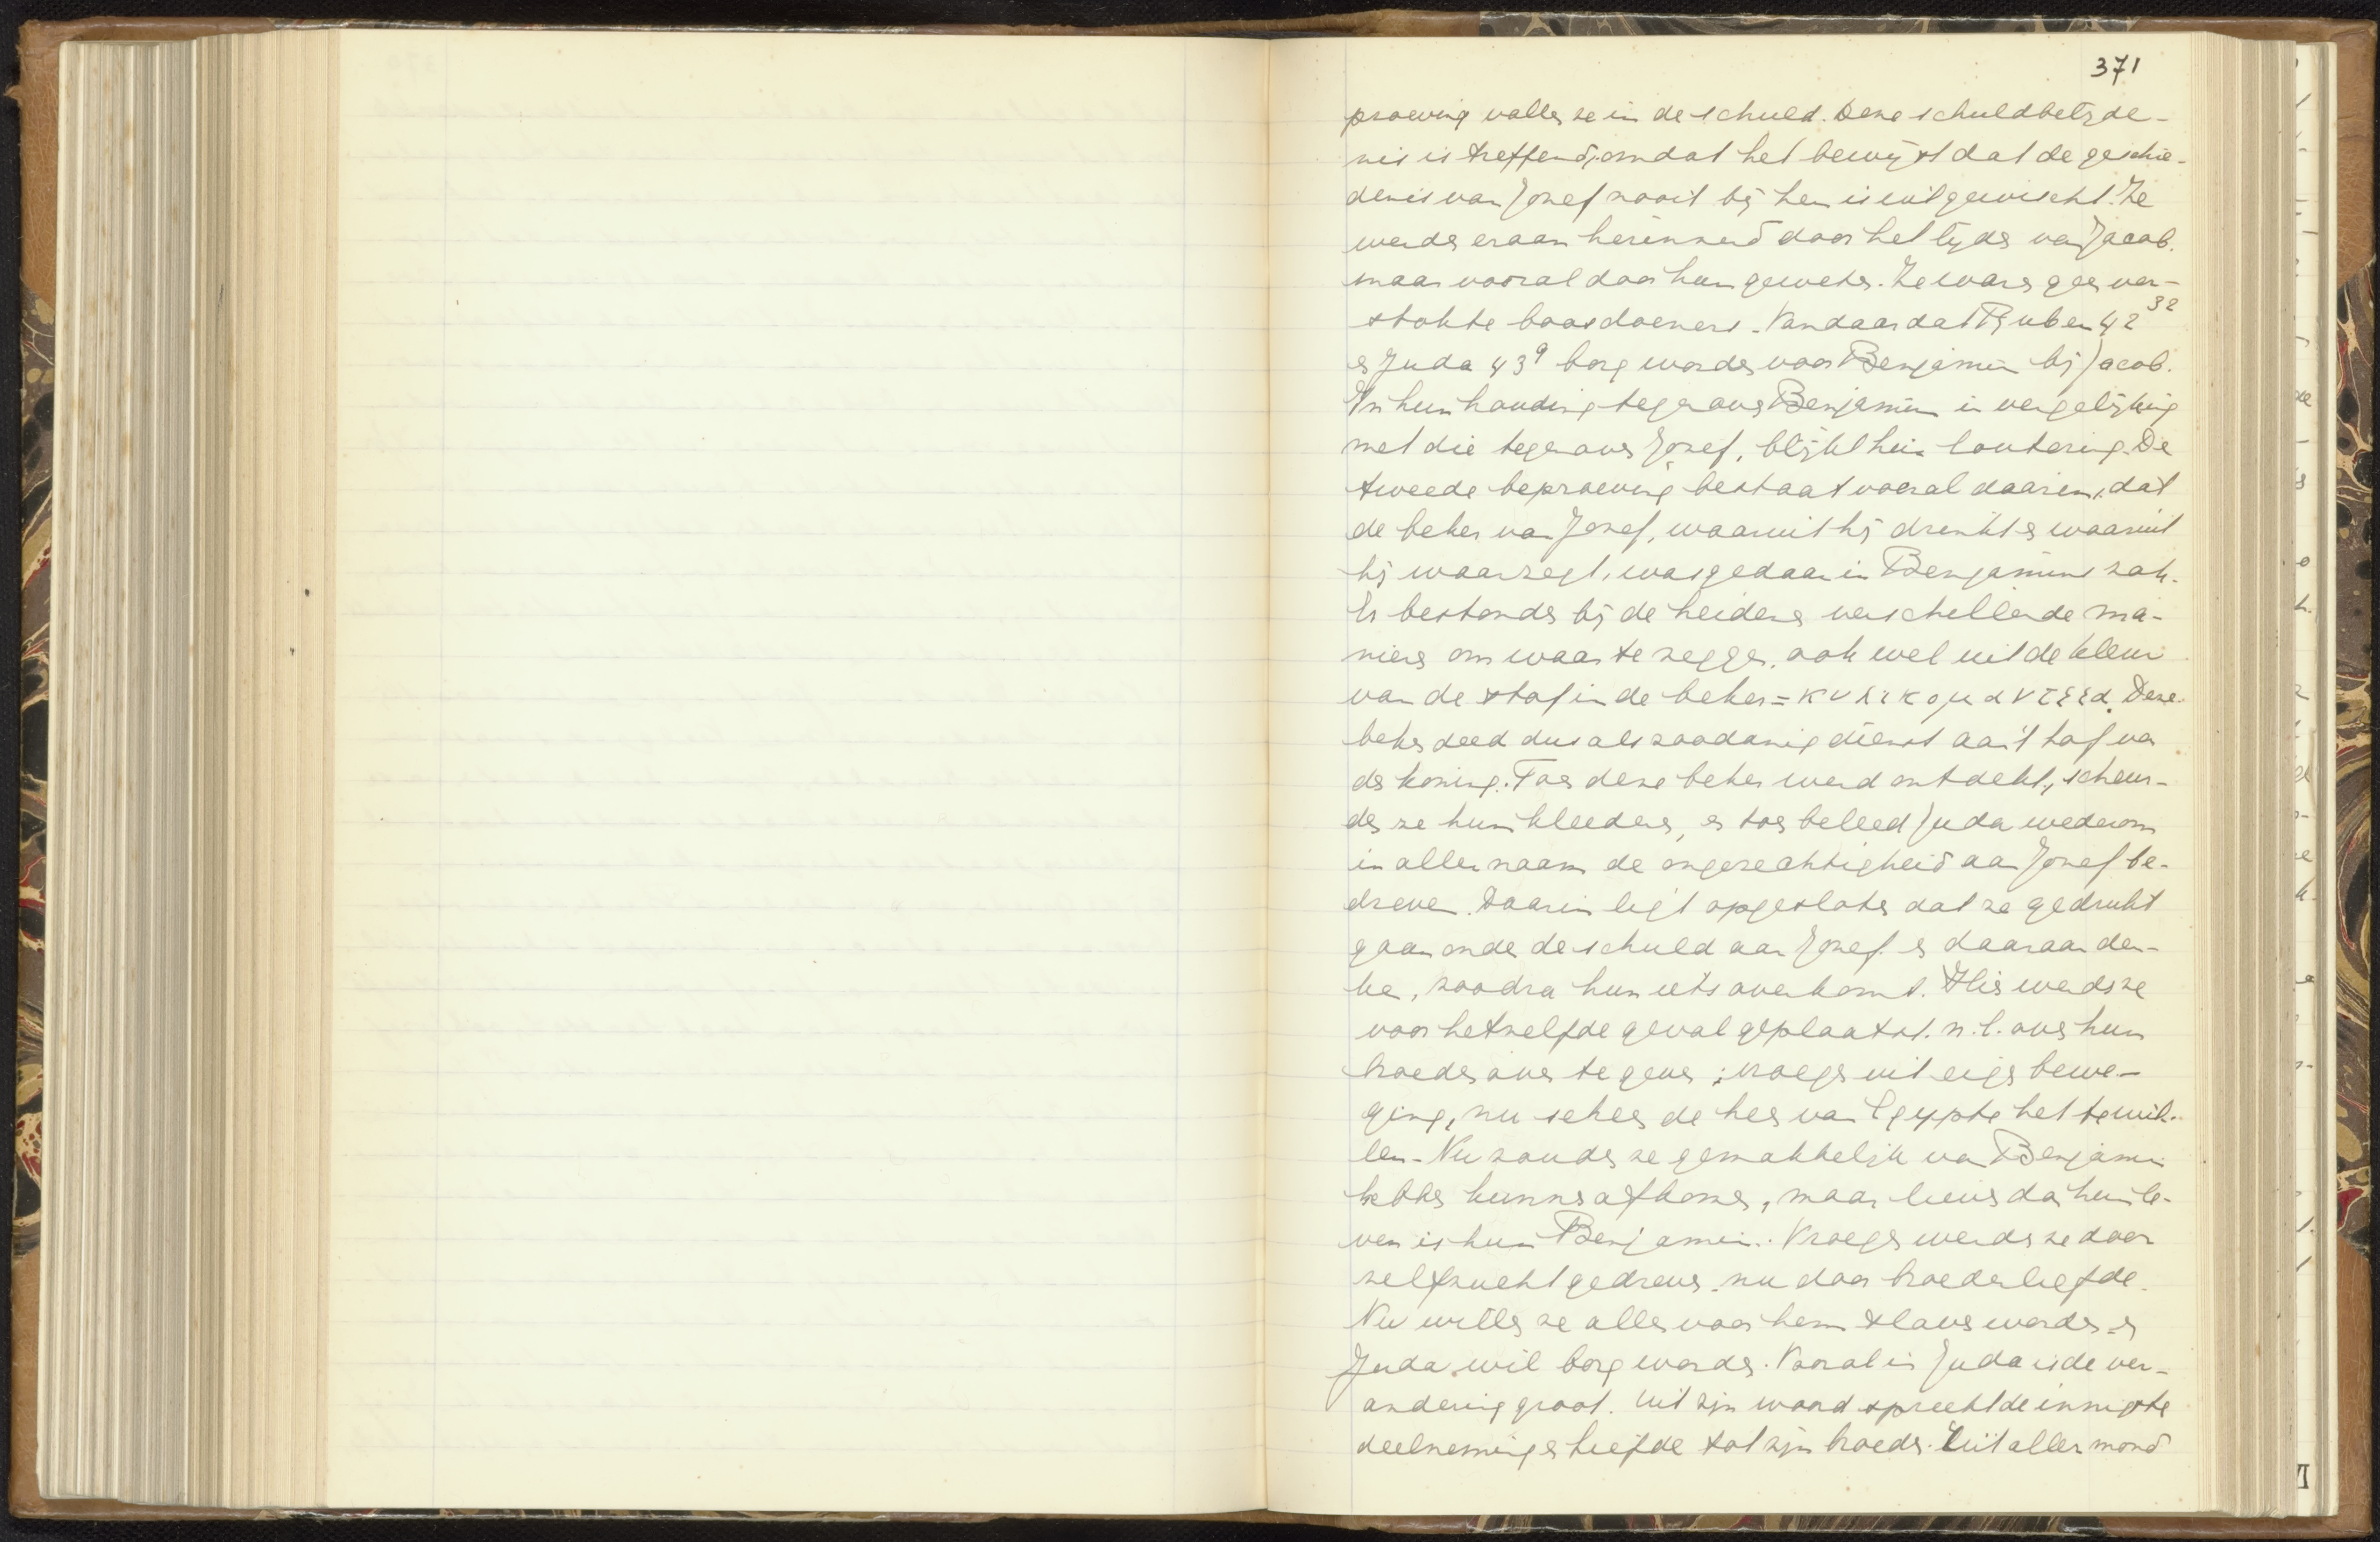 371
proeving vallen ze in de schuld. Deze schuldbelijde-
nis is treffend, omdat het bewijst dat de geschie-
denis van Jozef nooit bij hen is uitgewischt. Ze
werden eraan herinnerd door het lijden van Jacob.
maar vooral door hun geweten. Ze waren geen ver-
stokte boosdoeners. Vandaar dat Ruben 42 32
en Juda 43 9 borg worden voor Benjamin bij Jacob.
In hun houding tegenover Benjamin in vergelijking
met die tegenover Jozef, blijkt hun loutering. De
tweede beproeving bestaat vooral daarin, dat
de beker van Jozef, waaruit hij drinkt en waaruit
hij waarzegt, was gedaan in Benjamins zak.
Er bestonden bij de heidenen verschillende ma-
nieren om waar te zeggen, ook wel uit de kleur
van de stof in de beker = κυλικομαντεεια. Deze
beker deed dus als zoodanig dienst aan 't hof van
den koning. Toen deze beker werd ontdekt, scheur-
den ze hun kleederen, en toen beleed Juda wederom
in aller naam de ongerechtigheid aan Jozef be-
dreven. Daarin ligt opgesloten dat ze gedrukt
gaan onder de schuld aan Jozef en daaraan den-
ken, zoodra hun iets overkomt. Hier werden ze
voor hetzelfde geval geplaatst. n.l. over hun
broeder over te geven; vroeger uit eigen bewe-
ging, nu scheen de heer van Egypte het te wil-
len. Nu zouden ze gemakkelijk van Benjamin
hebben kunnen afkomen, maar liever dan hun le-
ven is hun Benjamin. Vroeger werden ze door
zelfzucht gedreven, nu door broederliefde.
Nu willen ze allen voor hem slaven worden en
Juda wil borg worden. Vooral in Juda is de ver-
andering groot. Uit zijn woord spreekt de innigste
deelneming en liefde tot zijn broeder. Uit aller mond